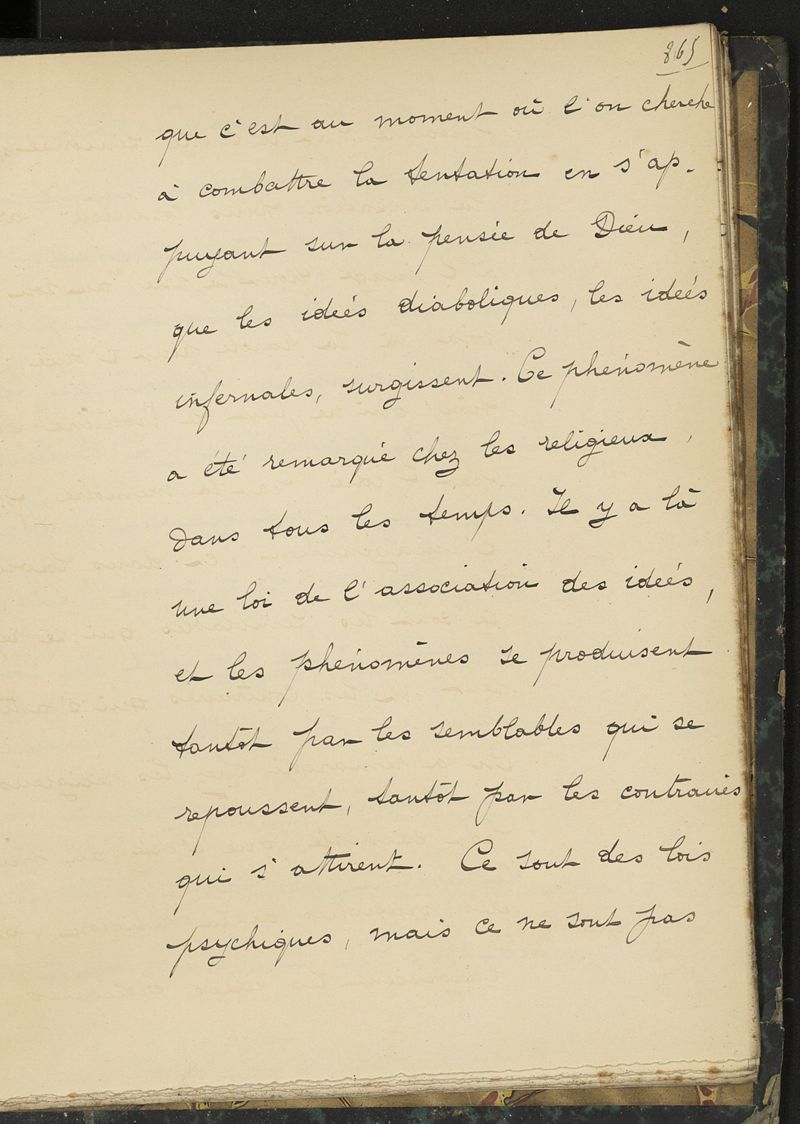 865
que c'est au moment où l'on cherche
à combattre la tentation en s'ap-
puyant sur la pensée de Dieu,
que les idées diaboliques, les idées
infernales, surgissent. Ce phénomène
a été remarqué chez les religieux,
dans tous les temps. Il y a là
une loi de l'association des idées,
et les phénomènes se produisent
tantôt par les semblables qui se
repoussent, tantôt par les contraires
qui s'attirent. Ce sont des lois
psychiques, mais ce ne sont pas